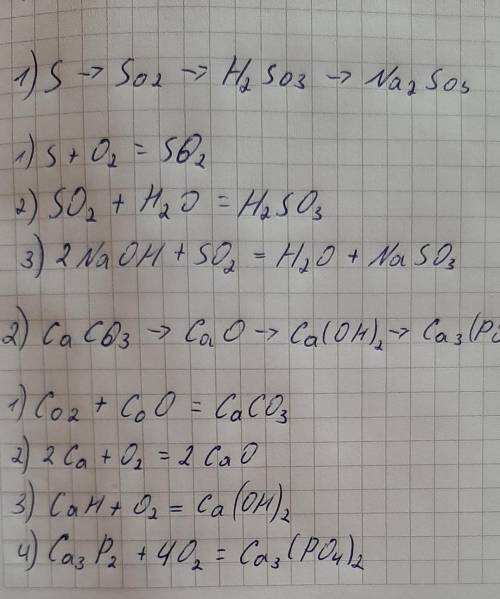 1) S → SO2 → H2SO3 → Na2SO3
1) S + O2 = SO2
2) SO2 + H2O = H2SO3
3) 2NaOH + SO2 = H2O + NaSO3
2) CaCO3 → CaO → Ca(OH)2 → Ca3(PO
1) CO2 + CoO = CaCO3
2) 2Ca + O2 = 2CaO
3) CaH + O2 = Ca(OH)2
4) Ca3P2 + 4O2 = Ca3(PO4)2